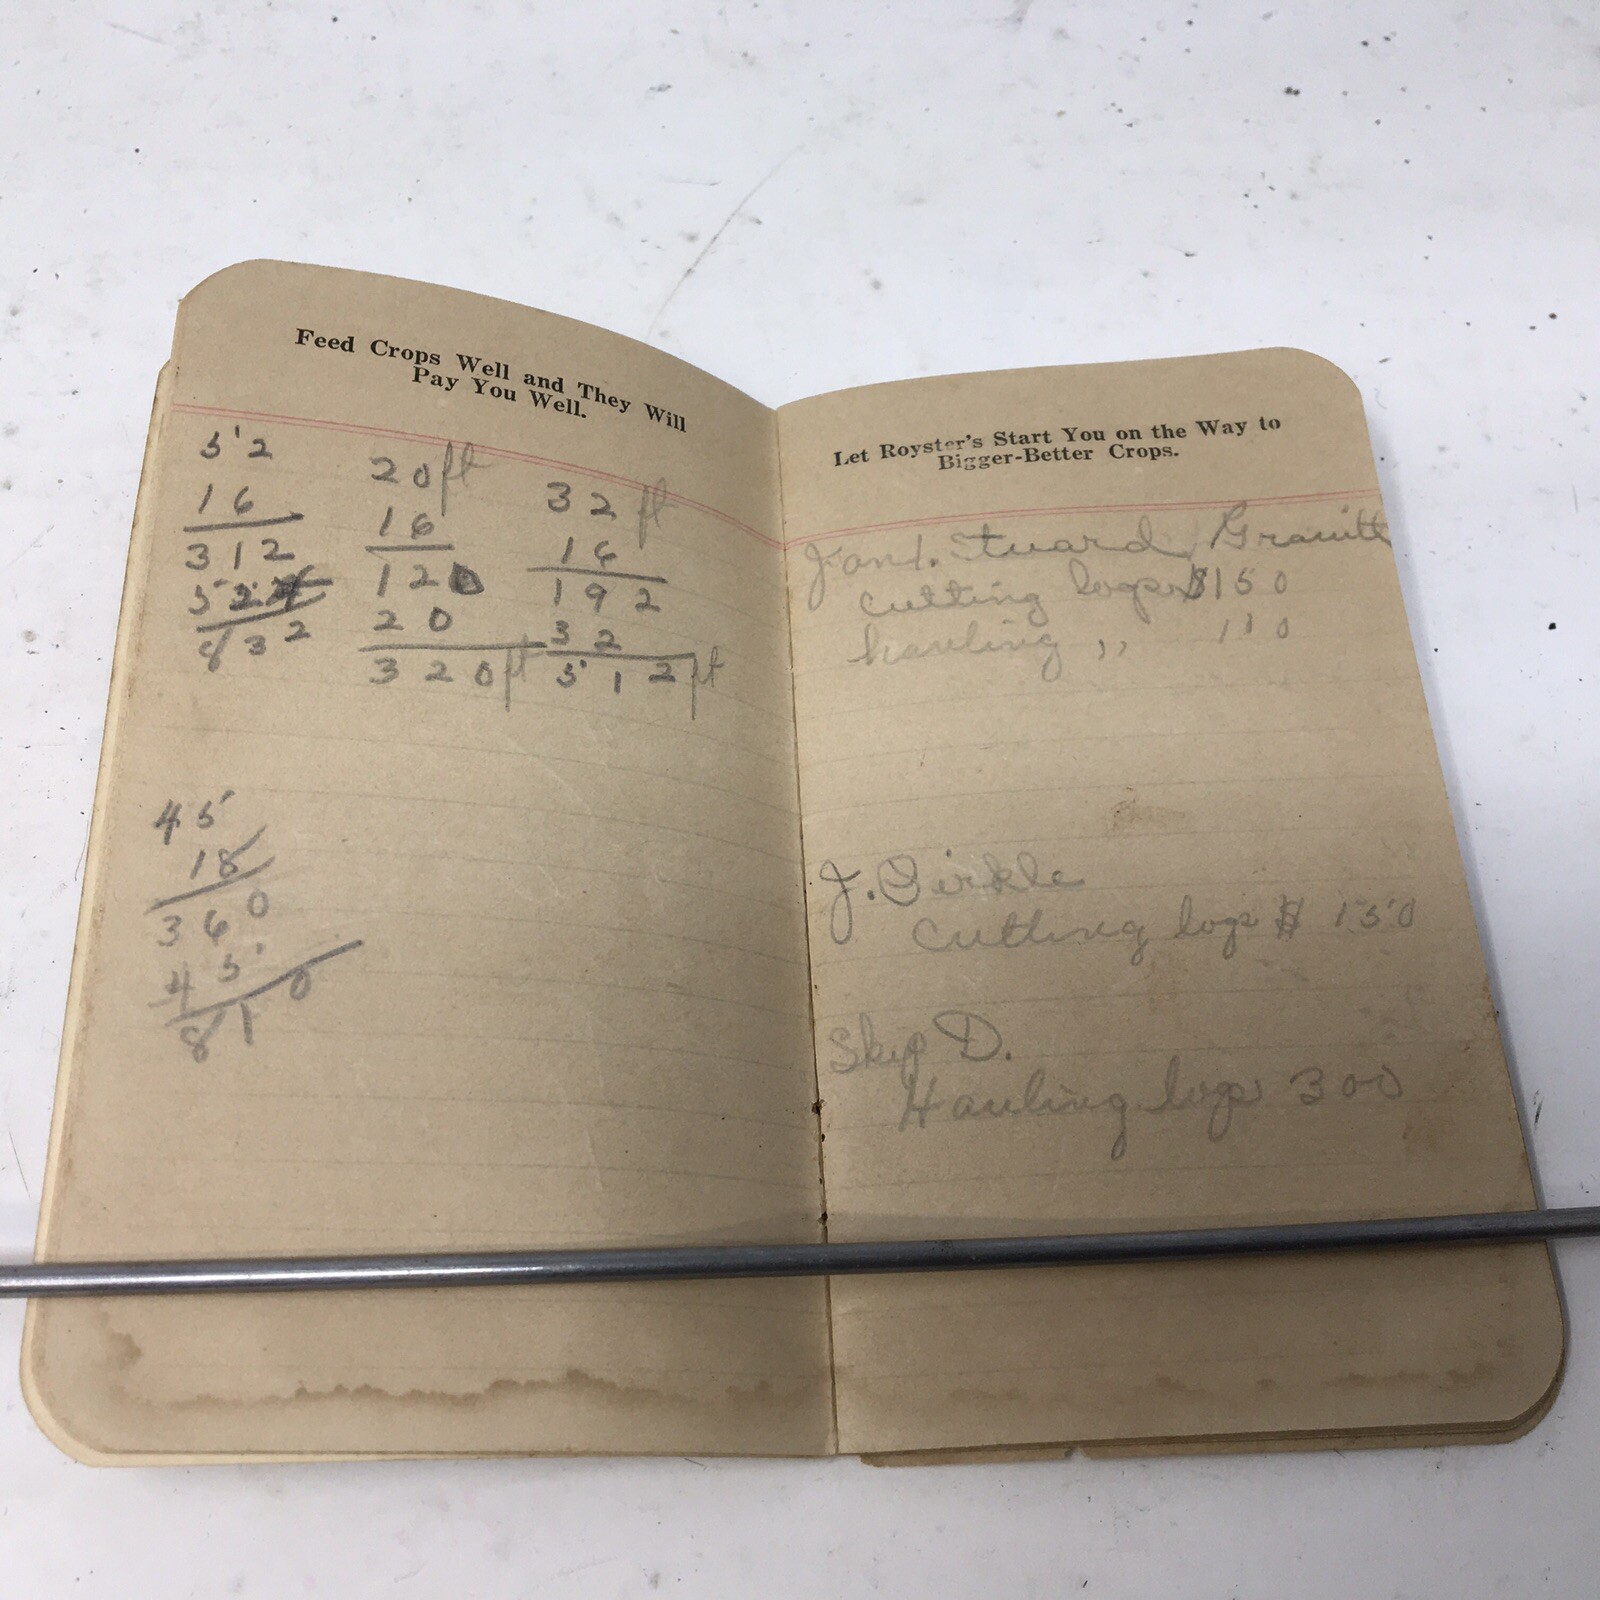 Feed Crops Well and They Will
Pay You Well.
52
16
312
52
832
20ft
16
120
20
320ft
32ft
16
192
32
512ft
45
18
360
45
810
Let Royster's Start You on the Way to
Bigger-Better Crops.
J. and. Stuard
cutting logs $150
hauling ,, 110
J. Pirkle
cutting logs $ 150
Skip D.
Hauling logs 300